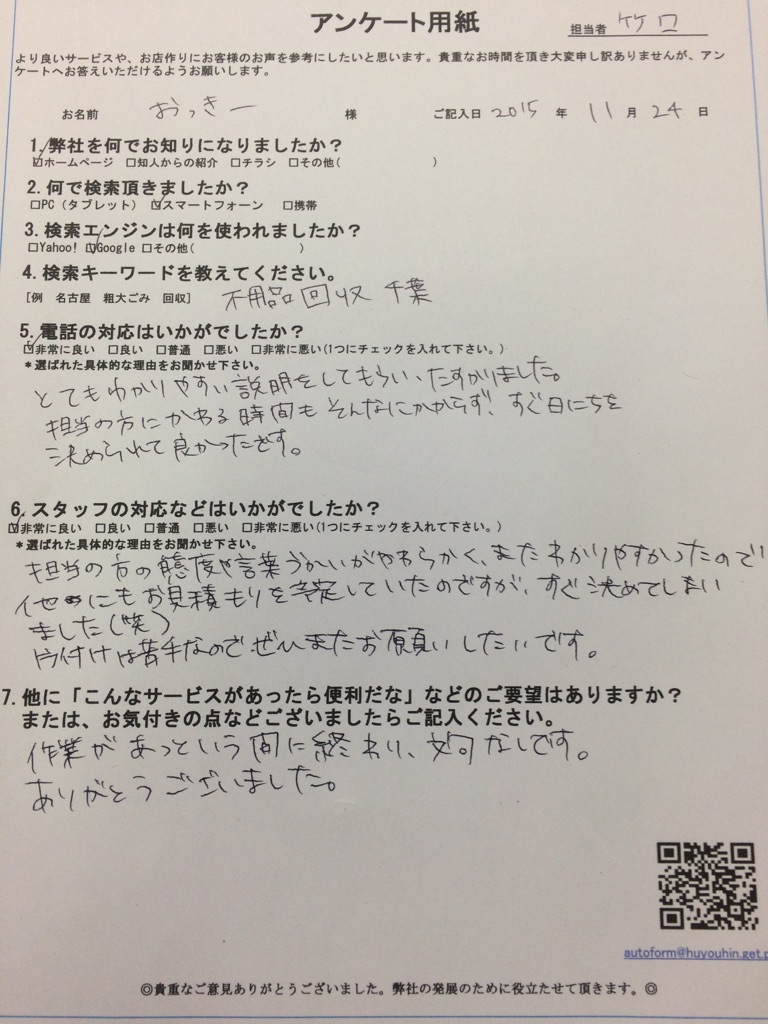 アンケート用紙
担当者 竹口
より良いサービスや、お店作りにお客様のお声を参考にしたいと思います。貴重なお時間を頂き大変申し訳ありませんが、アン
ケートへお答えいただけるようお願いします。
お名前 おっきー 様 ご記入日 2015 年 11 月 24 日
1.弊社を何でお知りになりましたか？
☑ホームページ □知人からの紹介 □チラシ □その他( )
2.何で検索頂きましたか？
□PC（タブレット） ☑スマートフォーン □携帯
3.検索エンジンは何を使われましたか？
□Yahoo! ☑Google □その他( )
4.検索キーワードを教えてください。
[例 名古屋 粗大ごみ 回収] 不用品回収 千葉
5.電話の対応はいかがでしたか？
☑非常に良い □良い □普通 □悪い □非常に悪い(1つにチェックを入れて下さい。)
*選ばれた具体的な理由をお聞かせ下さい。
とてもわかりやすい説明をしてもらい、たすかりました。
担当の方にかわる時間もそんなにかからず、すぐ日にちを
決められて良かったです。
6.スタッフの対応などはいかがでしたか？
☑非常に良い □良い □普通 □悪い □非常に悪い(1つにチェックを入れて下さい。)
*選ばれた具体的な理由をお聞かせ下さい。
担当の方の態度や言葉づかいがやわらかく、またわかりやすかったので
他にもお見積もりを予定していたのですが、すぐ決めてしまい
ました(笑)
片付けは苦手なのでぜひまたお願いしたいです。
7.他に「こんなサービスがあったら便利だな」などのご要望はありますか？
または、お気付きの点などございましたらご記入ください。
作業があっという間に終わり、文句なしです。
ありがとうございました。
autoform@huyouhin.get.p
◎貴重なご意見ありがとうございました。弊社の発展のために役立たせて頂きます。◎